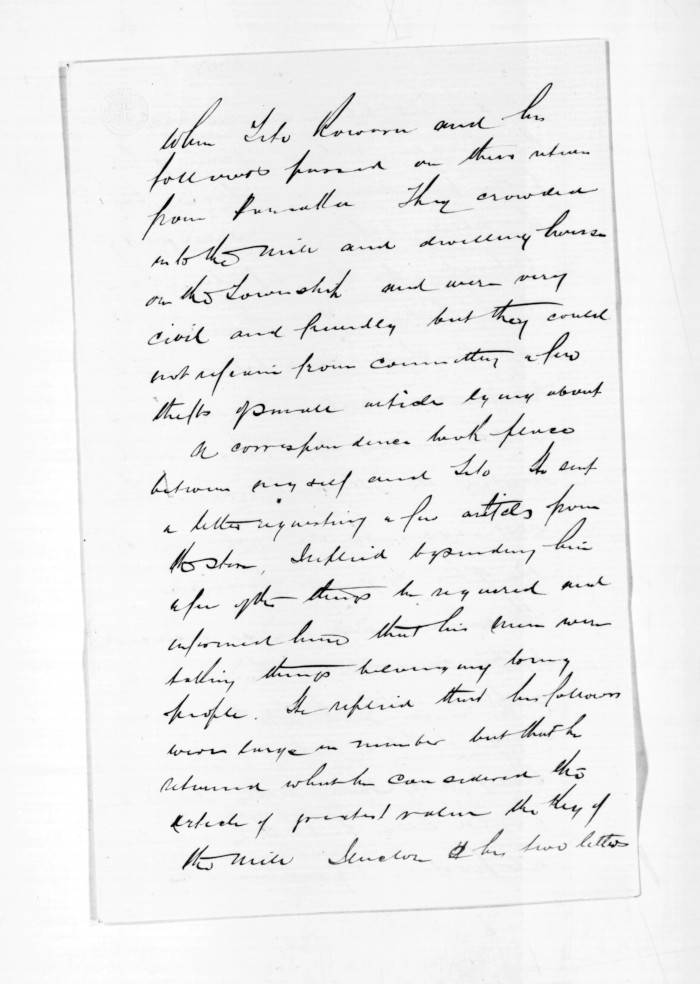 When Tito Kowaru and his
followers passed on their return
from They crowded
into the Mill and dwelling house
on the Township and were very
civil and friendly but they could
not refrain from committing a few
thefts of small article lying about
A correspondence took place
between myself and Tito He sent
a letter requesting a few articles from
the Store, I replied by sending him
a few of the things he required and
informed him that his men were
taking things belonging to my
people. He replied that his followers
were large in number but that he
returned what he considered the
article of greatest value the Key of
the Mill I enclose his two letters